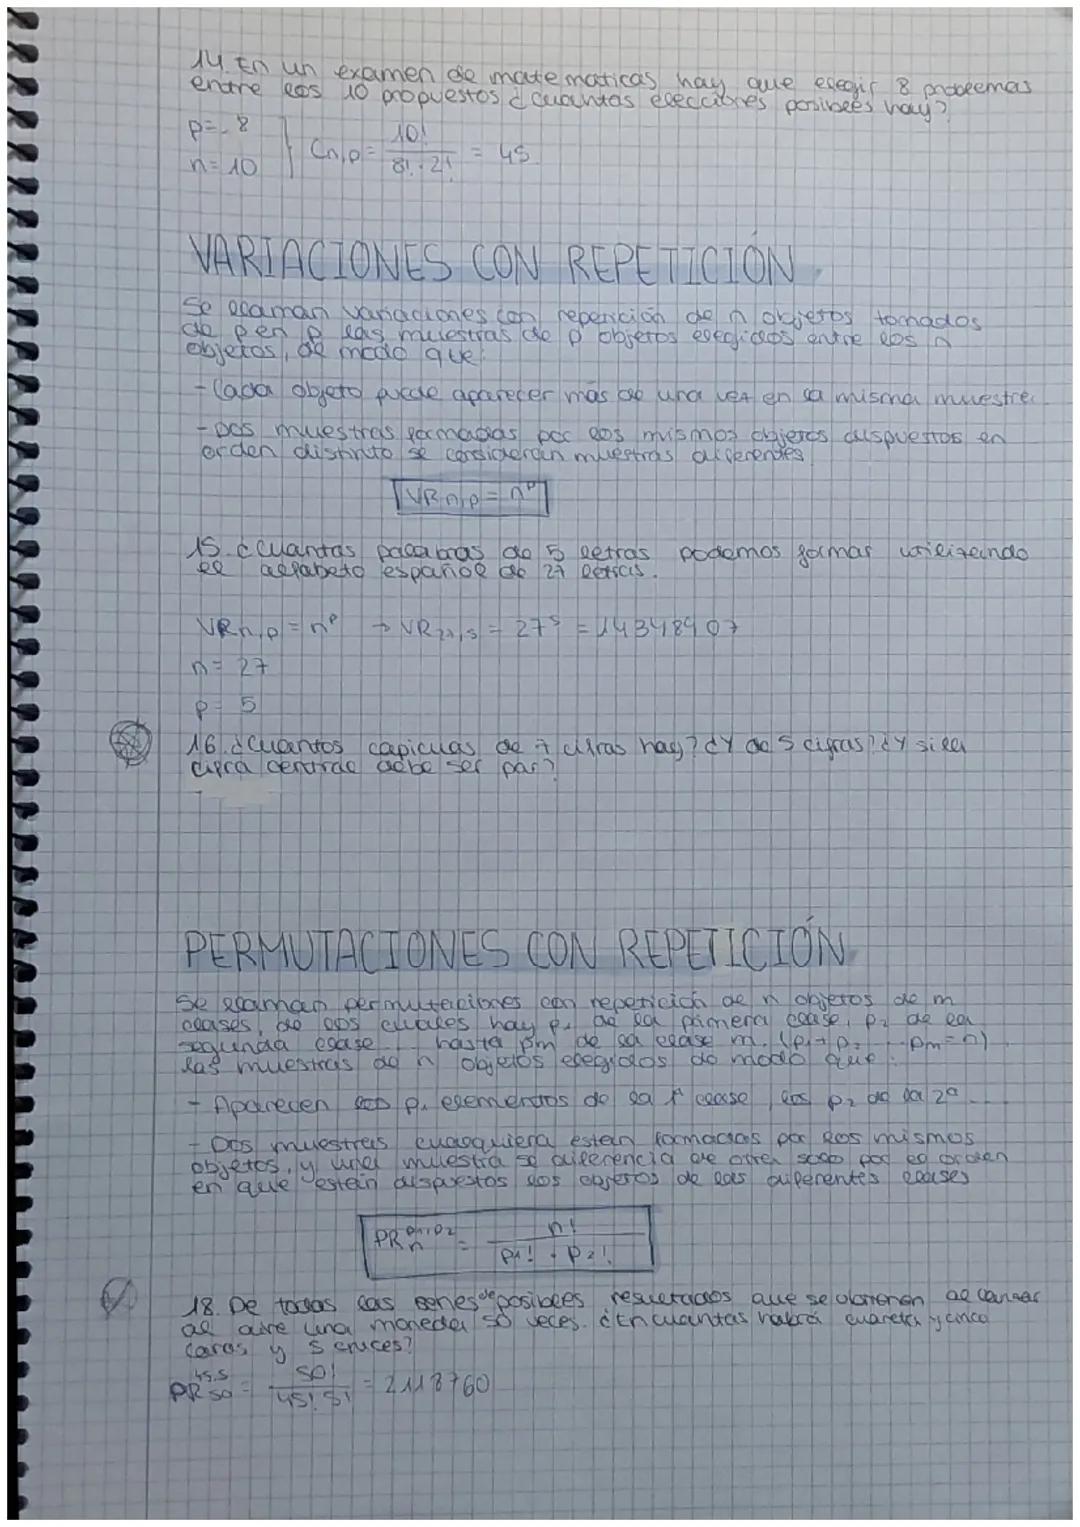 14. En un examen de matematicas hay que elegir 8 problemas
entre los 10 propuestos ¿cuantas elecciones posibles hay?
p= 8
n=10 } Cn,p = 10! / 8!·2! = 45
VARIACIONES CON REPETICIÓN
Se llaman variaciones con repetición de n objetos tomados
de p en p las muestras de p objetos elegidos entre los n
objetos, de modo que:
- Cada objeto puede aparecer más de una vez en la misma muestra.
- Dos muestras formadas por los mismos objetos dispuestos en
orden distinto se consideran muestras diferentes
VRn,p = nᵖ
15. ¿cuantas palabras de 5 letras podemos formar utilizando
el alfabeto español de 27 letras.
VRn,p = nᵖ → VR27,5 = 27⁵ = 14348907
n= 27
p= 5
16. ¿Cuantos capicuas de 7 cifras hay? ¿Y de 5 cifras? ¿Y si la
cifra central debe ser par?
PERMUTACIONES CON REPETICIÓN
Se llaman permutaciones con repetición de n objetos de m
clases, de los cuales hay p₁ de la primera clase, p₂ de la
segunda clase... hasta pm de la clase m. (p₁+p₂ ... pm=n)
las muestras de n objetos elegidos de modo que:
- Aparecen los p₁ elementos de la 1ª clase, los p₂ de la 2ª...
- Dos muestras cualquiera están formadas por los mismos
objetos, y una muestra se diferencia de otra solo por el orden
en que están dispuestos los objetos de las diferentes clases
PRn^p1,p2 = n! / p1! · p2!
18. De todas las series de posibles resultados que se obtienen al lanzar
al aire una moneda 50 veces. ¿En cuantas habrá cuarenta y cinco
caras y 5 cruces?
PR50^45,5 = 50! / 45!·5! = 2118760